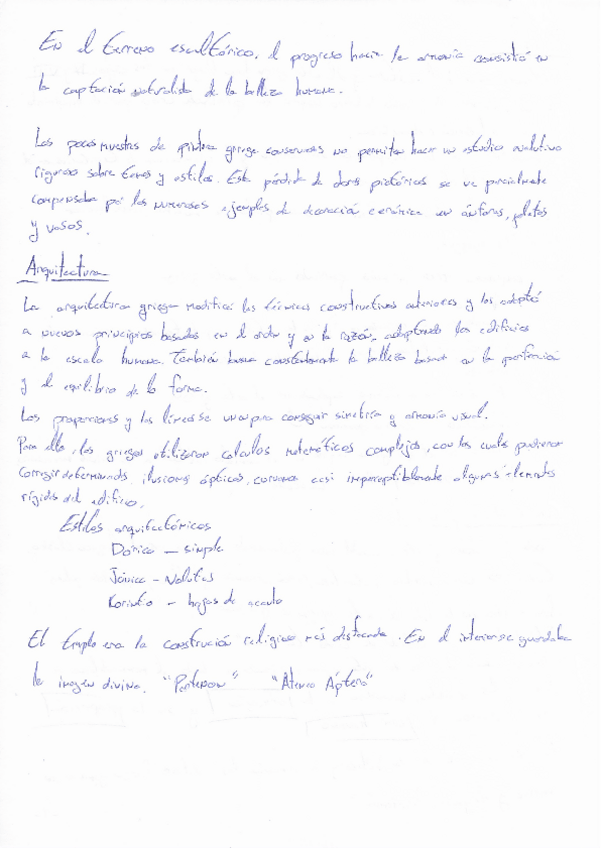 En el terreno escultórico, el progreso hacia la armonía consistió en
la captación naturalista de la belleza humana.
Las pocas muestras de pintura griega conservadas no permiten hacer un estudio evolutivo
riguroso sobre temas y estilos. Esta pérdida de datos pictóricos se ve parcialmente
compensada por los numerosos ejemplos de decoración cerámica en ánforas, platos
y vasos.
Arquitectura
La arquitectura griega modifica las técnicas constructivas anteriores y las adaptó
a nuevos principios basados en el orden y en la razón, adaptando los edificios
a la escala humana. También busca constantemente la belleza basada en la perfección
y el equilibrio de la forma.
Las proporciones y las líneas se unen para conseguir simetría y armonía visual.
Para ello, los griegos utilizaron calculos matemáticos complejos, con los cuales pudieron
corregir determinadas ilusiones ópticas, curvando casi imperceptiblemente algunos elementos
rígidos del edificio.
Estilos arquitectónicos
Dórico – simple
Jónico – Volutas
Korintio – hojas de acanto
El templo era la construción religiosa más destacada. En el interior se guardaba
la imagen divina. "Partenon" "Atenea Áptera"